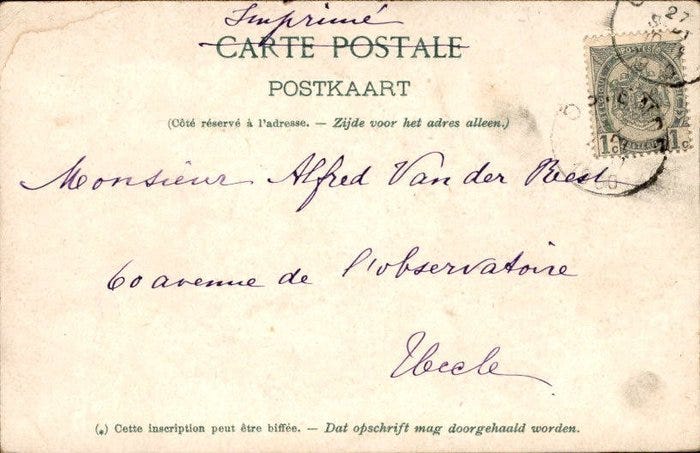 Imprimé
CARTE POSTALE
POSTKAART
(Côté réservé à l'adresse. — Zijde voor het adres alleen.)
1c 1c
Monsieur Alfred Van der Rest
60 avenue de l'observatoire
Uccle
(*) Cette inscription peut être biffée. — Dat opschrift mag doorgehaald worden.